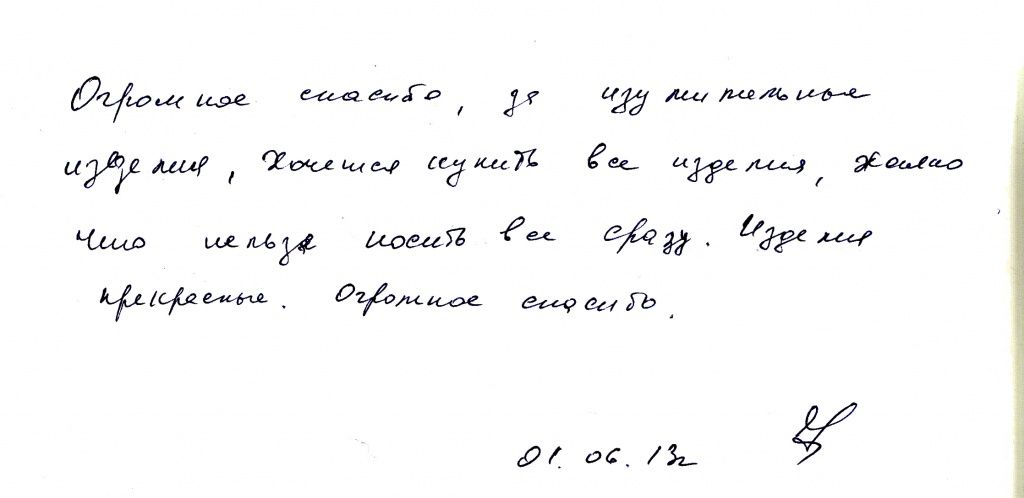 Огромное спасибо, за изумительные
изделия, хочется купить все изделия, жалко
что нельзя носить все сразу. Изделия
прекрасные. Огромное спасибо.
01.06.13г